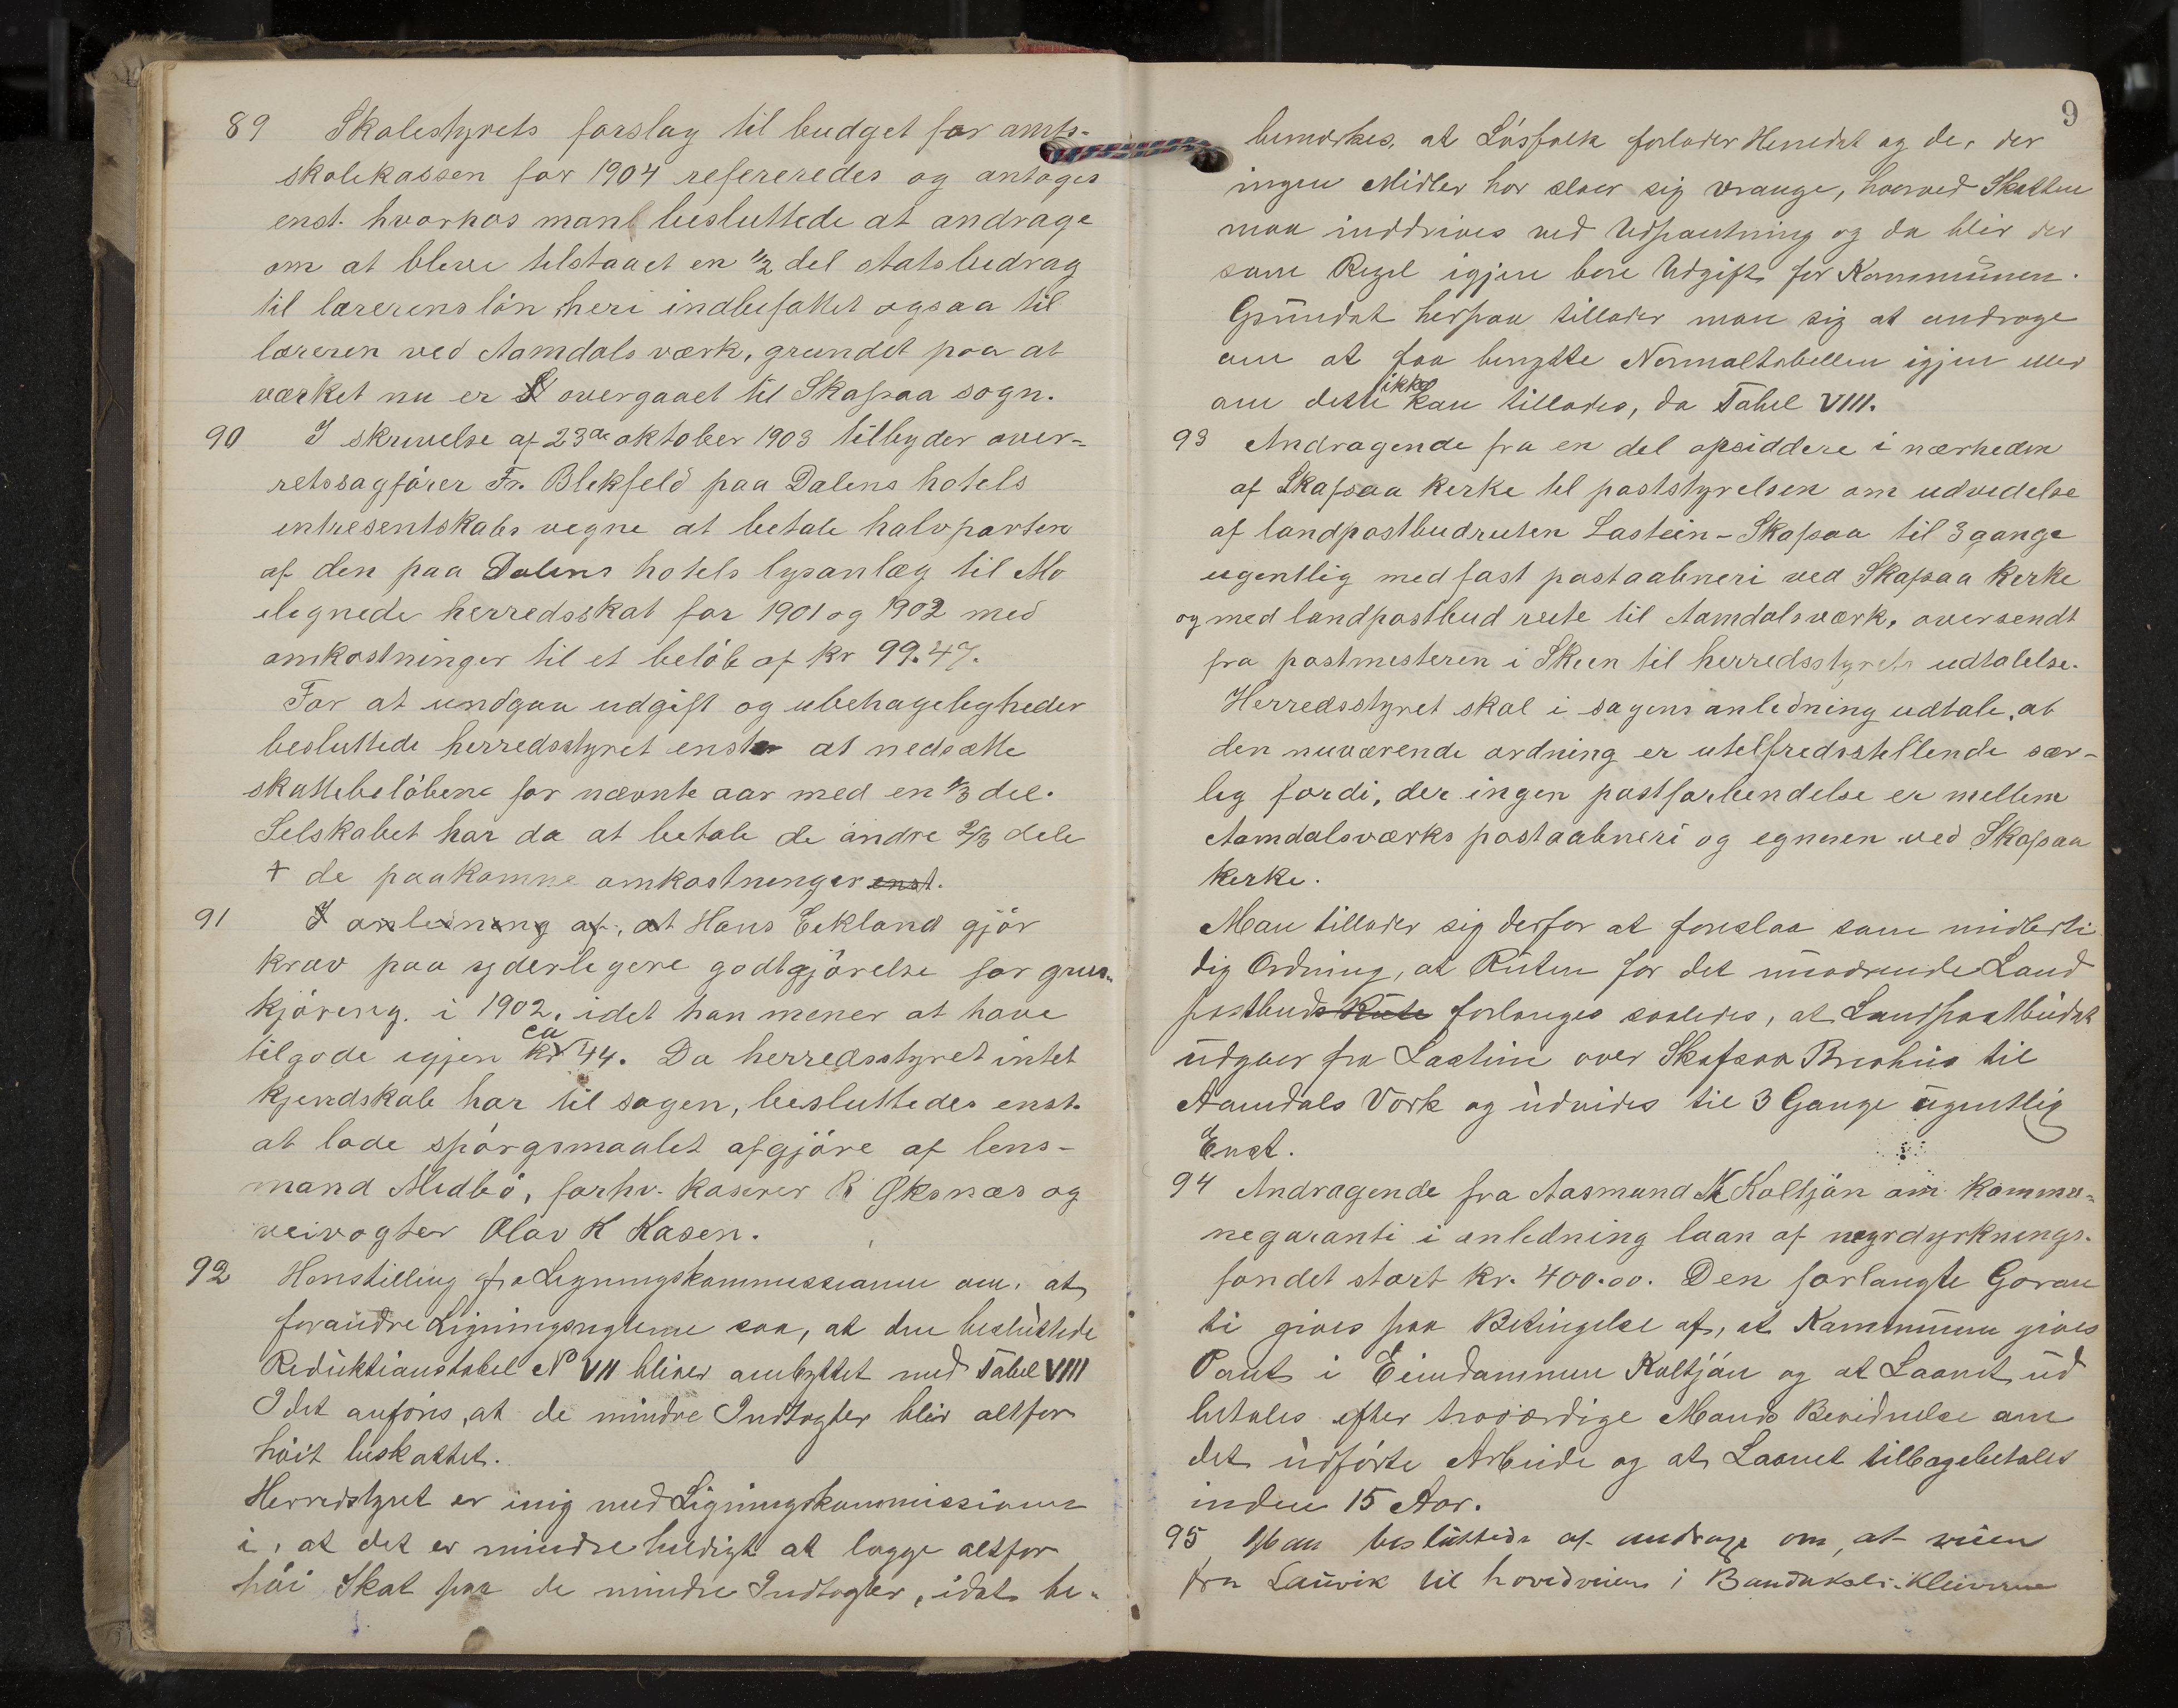 89 Skolestyrets forslag til budget for amts-
skolekassen for 1904 refereredes og antoges
enst. hvorhos man besluttede at andrage
om at blive tilstaaet en 1/2 del statsbidrag
til lærerens lön, heri indbefattet ogsaa til
læreren ved Aamdals værk, grundet paa at
værket nu er overgaaet til Skafsaa sogn.
90 I skrivelse af 23de oktober 1903 tilbyder over-
retssagförer Fr. Blekfeld paa Dalens hotels
intresentskabs vegne at betale halvparten
af den paa Dalens hotels lysanlæg til Mo
ilignede herredsskat for 1901 og 1902 med
omkostninger til et belöb af kr 99.47.
For at undgaa udgift og ubehageligheder
besluttede herredsstyret enst at nedsætte
skattebelöbene for nævnte aar med en 1/3 del.
Selskabet har da at betale de andre 2/3 dele
+ de paakomne omkostninger enst.
91 I anledning af, at Hans Eekland gjör
krav paa yderligere godtgjörelse for grus-
kjöring i 1902, idet han mener at have
tilgode igjen ca kr 44. Da herredsstyret intet
kjendskab har til sagen, besluttedes enst.
at lade spörgsmaalet afgjöre af lens-
mand Midbö, forhv. kaserer R Öksnæs og
veivogter Olav K Kasen.
92 Henstilling fra Ligningskommissionen om, at
forandre Ligningsreglerne saa, at den besluttede
Reduktionstabel No VII bliver ombyttet med Tabel VIII
Idet anföris, at de mindre Indtægter blir altfor
höit beskattet.
Herredstyret er inig med Ligningskommissionen
i, at det er mindre heldigt at lægge altfor
höi Skat paa de mindre Indtægter, idet be-
9
bemærkes, at Lösfolk forlader Herredet og de, der
ingen Midler har slaar sig vrange, hvorved Skatten
maa inddrives ved Udpantning og da blir der
som Regel igjen bare Udgift for Kommunen.
Grundet herpaa tillader man sig at andrage
om at faa benytte Normaltabellen igjen eller
om dette ikke kan tillades, da Tabel VIII.
93 Andragende fra en del opsiddere i nærheden
af Skafsaa kirke til poststyrelsen om udvidelse
af landpostbudruten Lastein-Skafsaa til 3 gange
ugentlig med fast postaabneri ved Skafsaa kirke
og med landpostbud rute til Aamdalsværk, oversendt
fra postmesteren i Skien til herredsstyrets udtalelse.
Herredsstyret skal i sagens anledning udtale, at
den nuværende ordning er utilfredsstillende sær-
lig fordi, der ingen postforbindelse er mellem
Aamdalsværks postaabneri og egnen ved Skafsaa
kirke.
Man tillader sig derfor at foreslaa som midlerti
dig Ordning, at Ruten for det nuværende Land
postbuds Rute forlænges saaledes, at Landpostbudet
udgaar fra Lastein over Skafsaa Brohus til
Aamdals Værk og udvides til 3 Gange ugentlig
Enst.
94 Andragende fra Aasmund K Koltjön om kommu-
negaranti i anledning laan af nyrdyrknings-
fondet stort kr. 400.00. Den forlangte Garan
ti gives paa Betingelse af, at Kommunen gives
Pant i Eiendommen Koltjön og at Laanet ud
betales efter troværdige Mænds Bevidnelse om
det udförte Arbeide og at Laanet tilbagebetales
inden 15 Aar.
95 Man besluttede at andrage om, at veien
fra Lauvik til hovedveien i Bandaksli-Kleivene